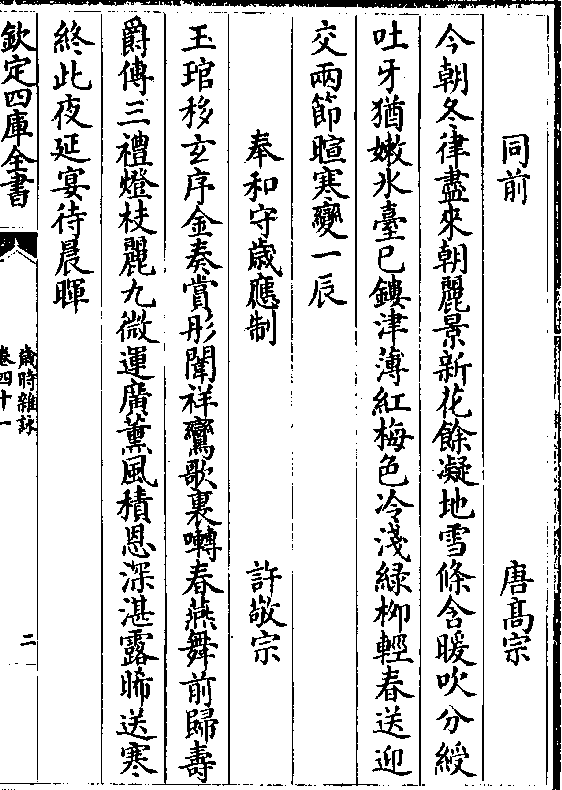 同前 唐髙宗
今朝冬律盡來朝麗景新花餘凝地雪條含暖吹分綬
吐牙猶嫩氷臺已鏤津薄紅梅色冷淺緑栁輕春送迎
交兩節暄寒變一辰
奉和守歳應制 許敬宗
玉琯移玄序金奏賞彤闈祥鸞歌裏囀春燕舞前歸壽
爵傳三禮燈枝麗九微運廣薫風積恩深湛露晞送寒
終此夜延宴待晨暉
欽定四庫全書
歳時雜詠
卷四十一
二